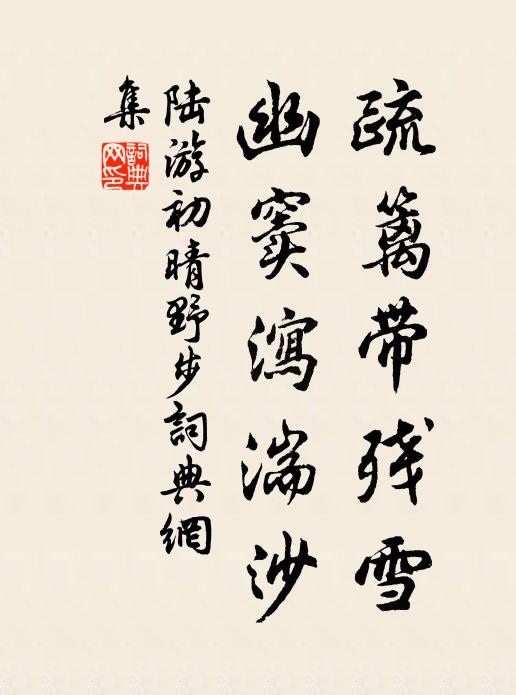 疏篱带残雪
幽窦泻湍沙
陆游初晴野步詞典網
集
詞典網印